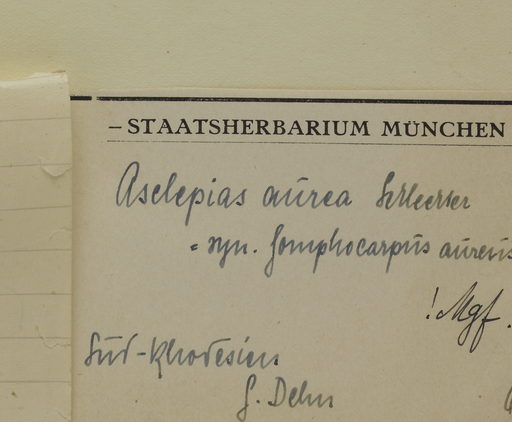 – STAATSHERBARIUM MÜNCHEN
Asclepias aurea Schlechter
= syn. Gomphocarpus aureus
! Mgf.
Süd-Rhodesien
G. Dehn